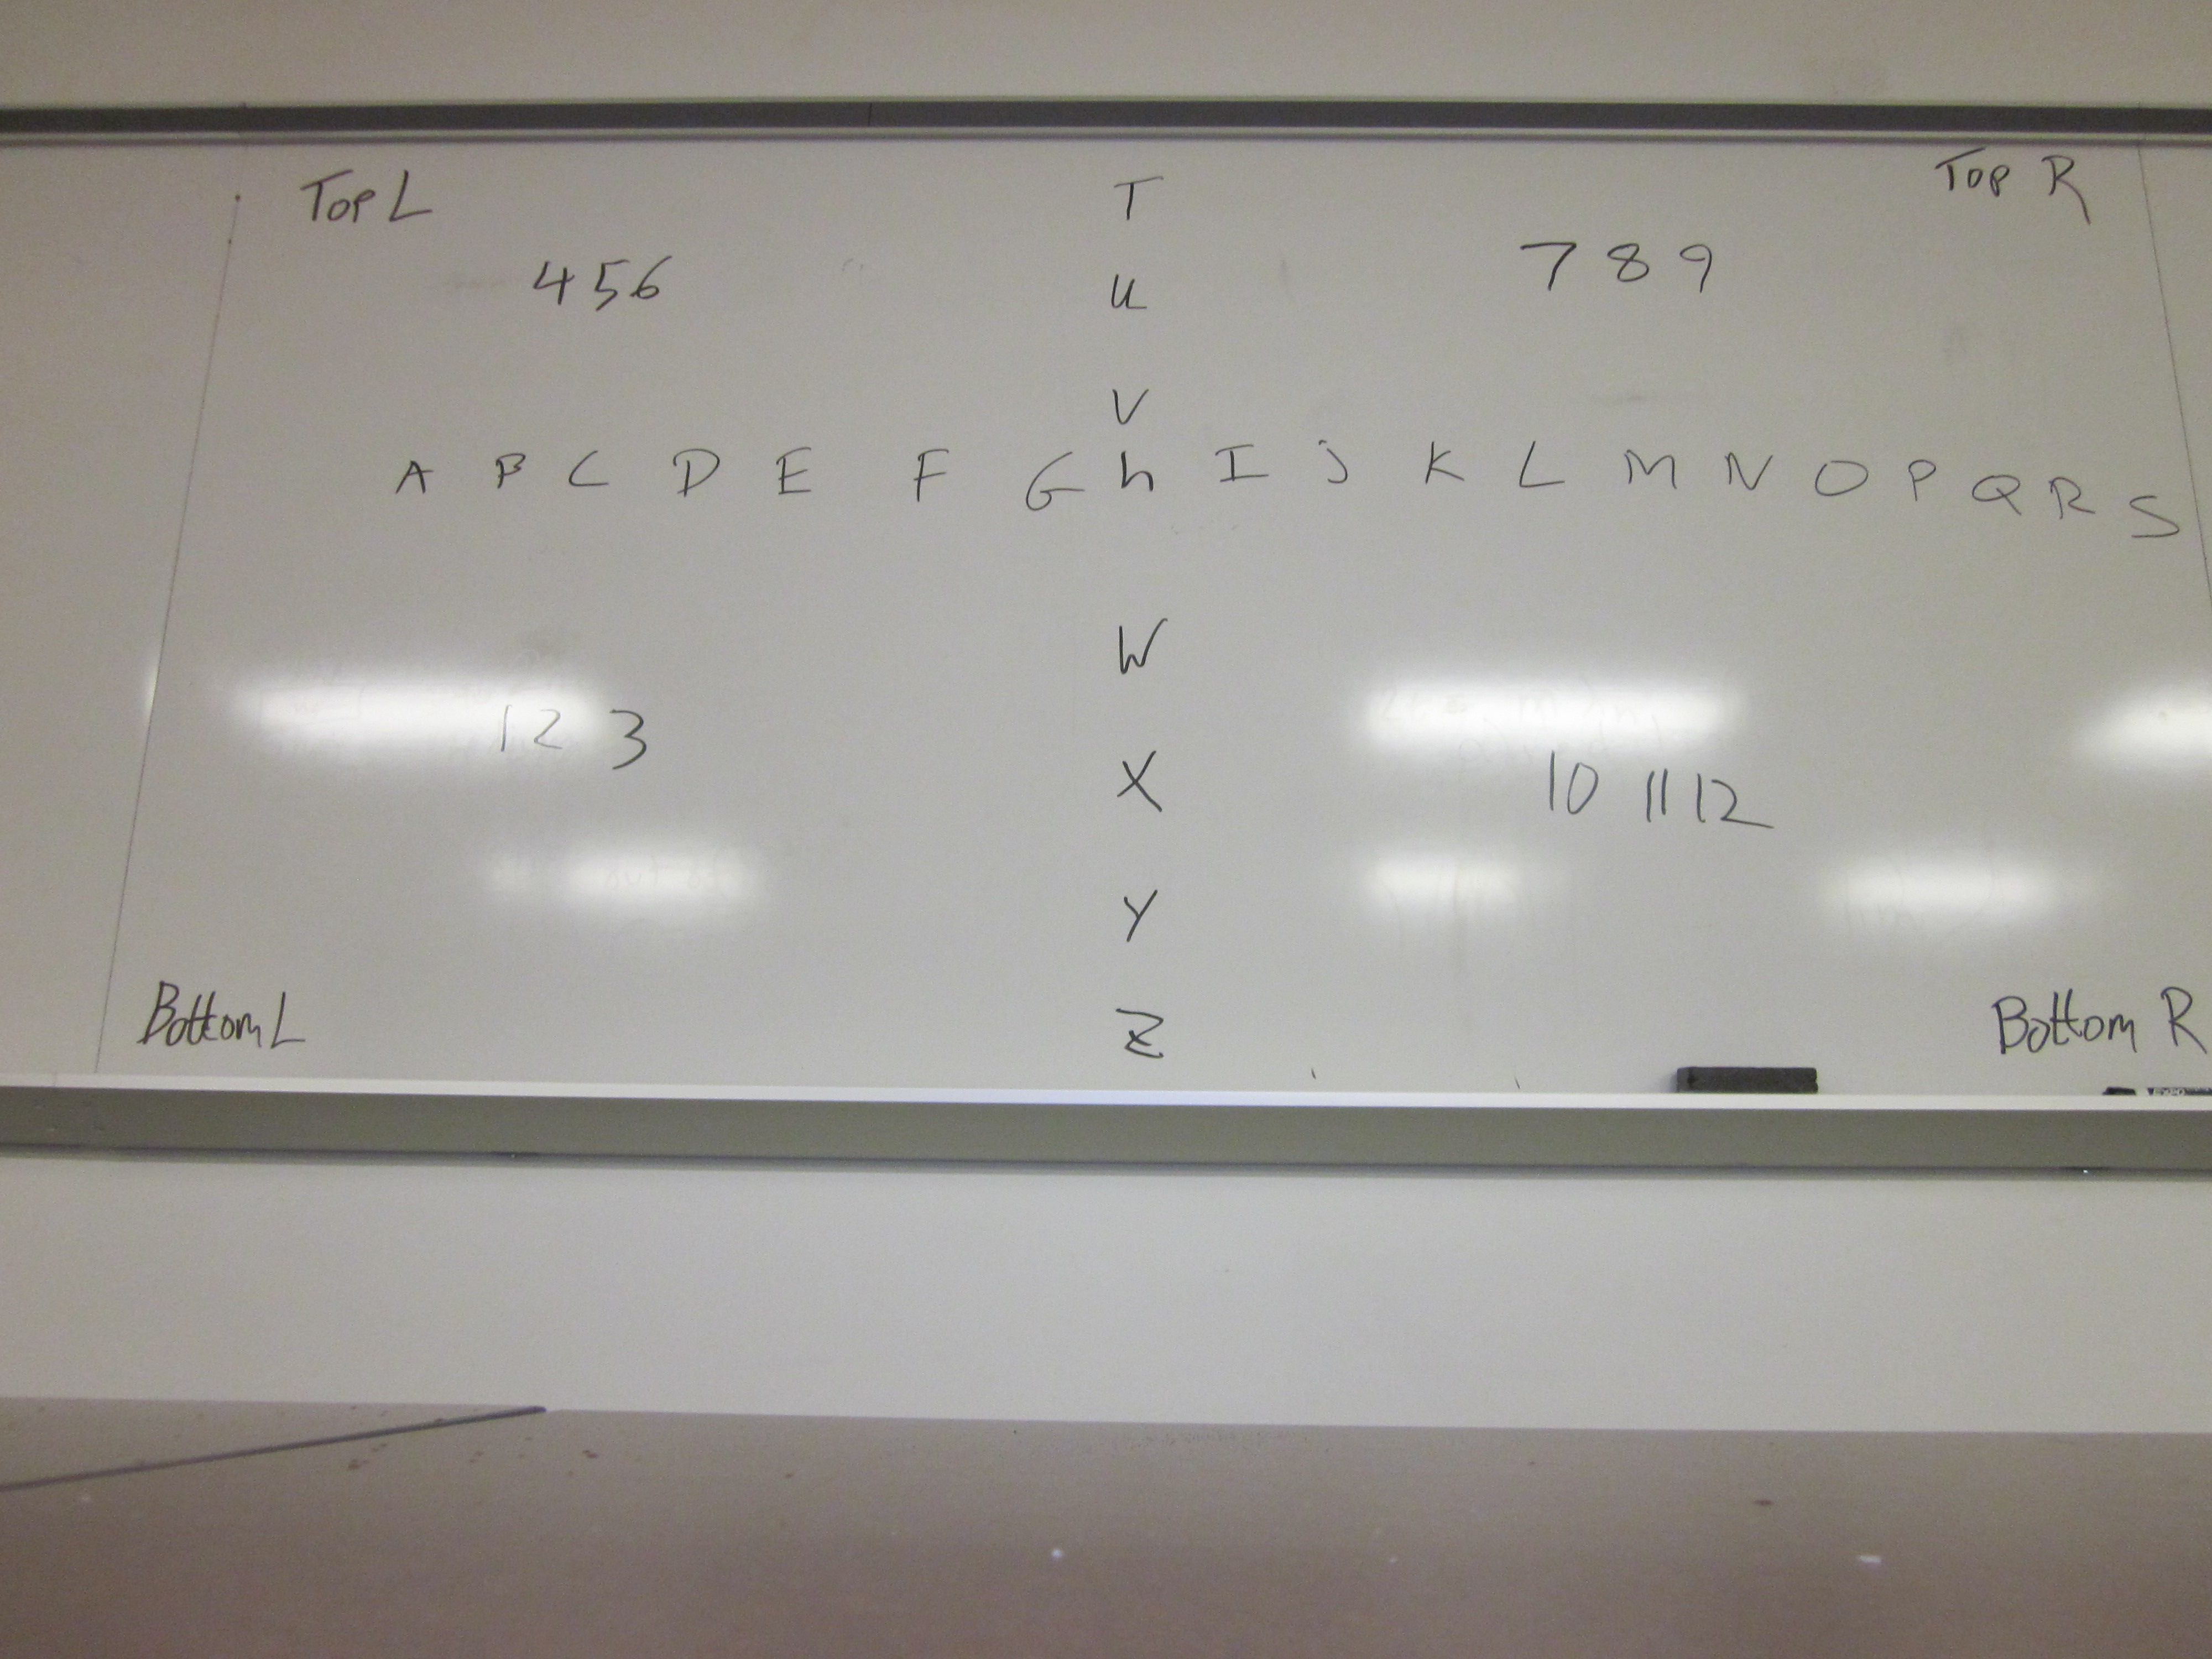 Top L T Top R
4 5 6 U 7 8 9
V
A B C D E F G h I J K L M N O P Q R S
W
1 2 3 X 10 11 12
Y
Bottom L Z Bottom R
EXPO